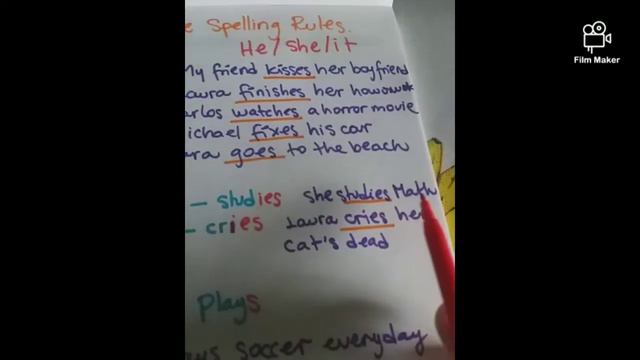 Spelling Rules.
He/she/it
My friend kisses her boyfriend
finishes her
watches a horror movie
fixes his car
goes to the beach
– studies She studies Math
– cries Laura cries her
cat's dead
Plays
soccer everyday
Film Maker